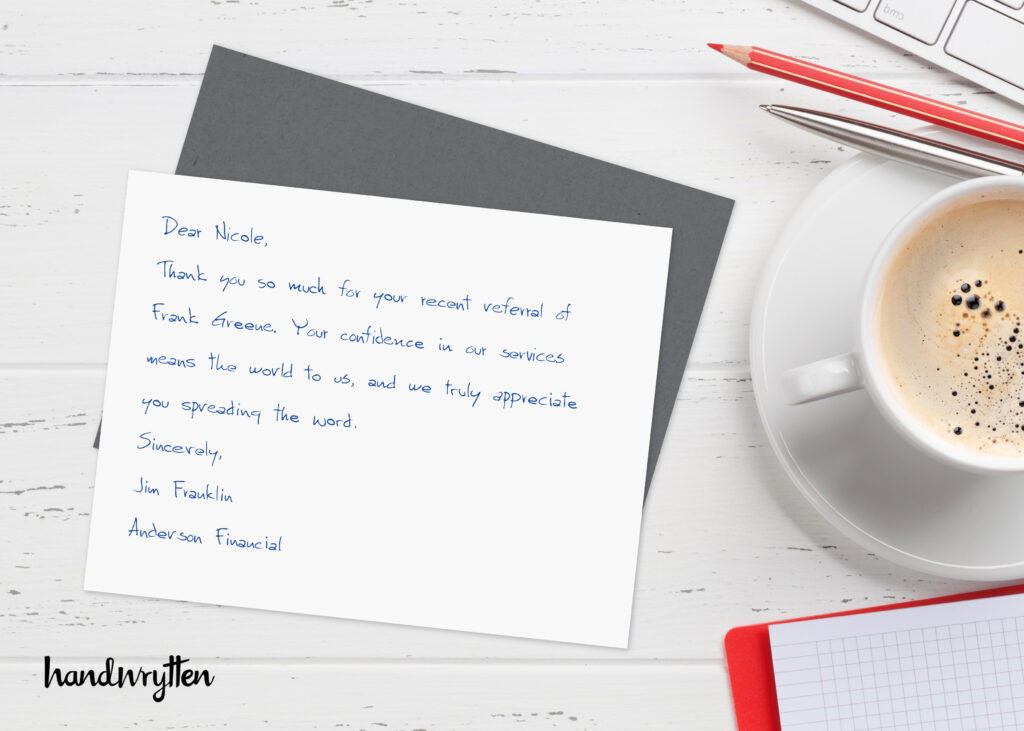 cmd
Dear Nicole,
Thank you so much for your recent referral of
Frank Greene. Your confidence in our services
means the world to us, and we truly appreciate
you spreading the word.
Sincerely,
Jim Franklin
Anderson Financial
handwrytten